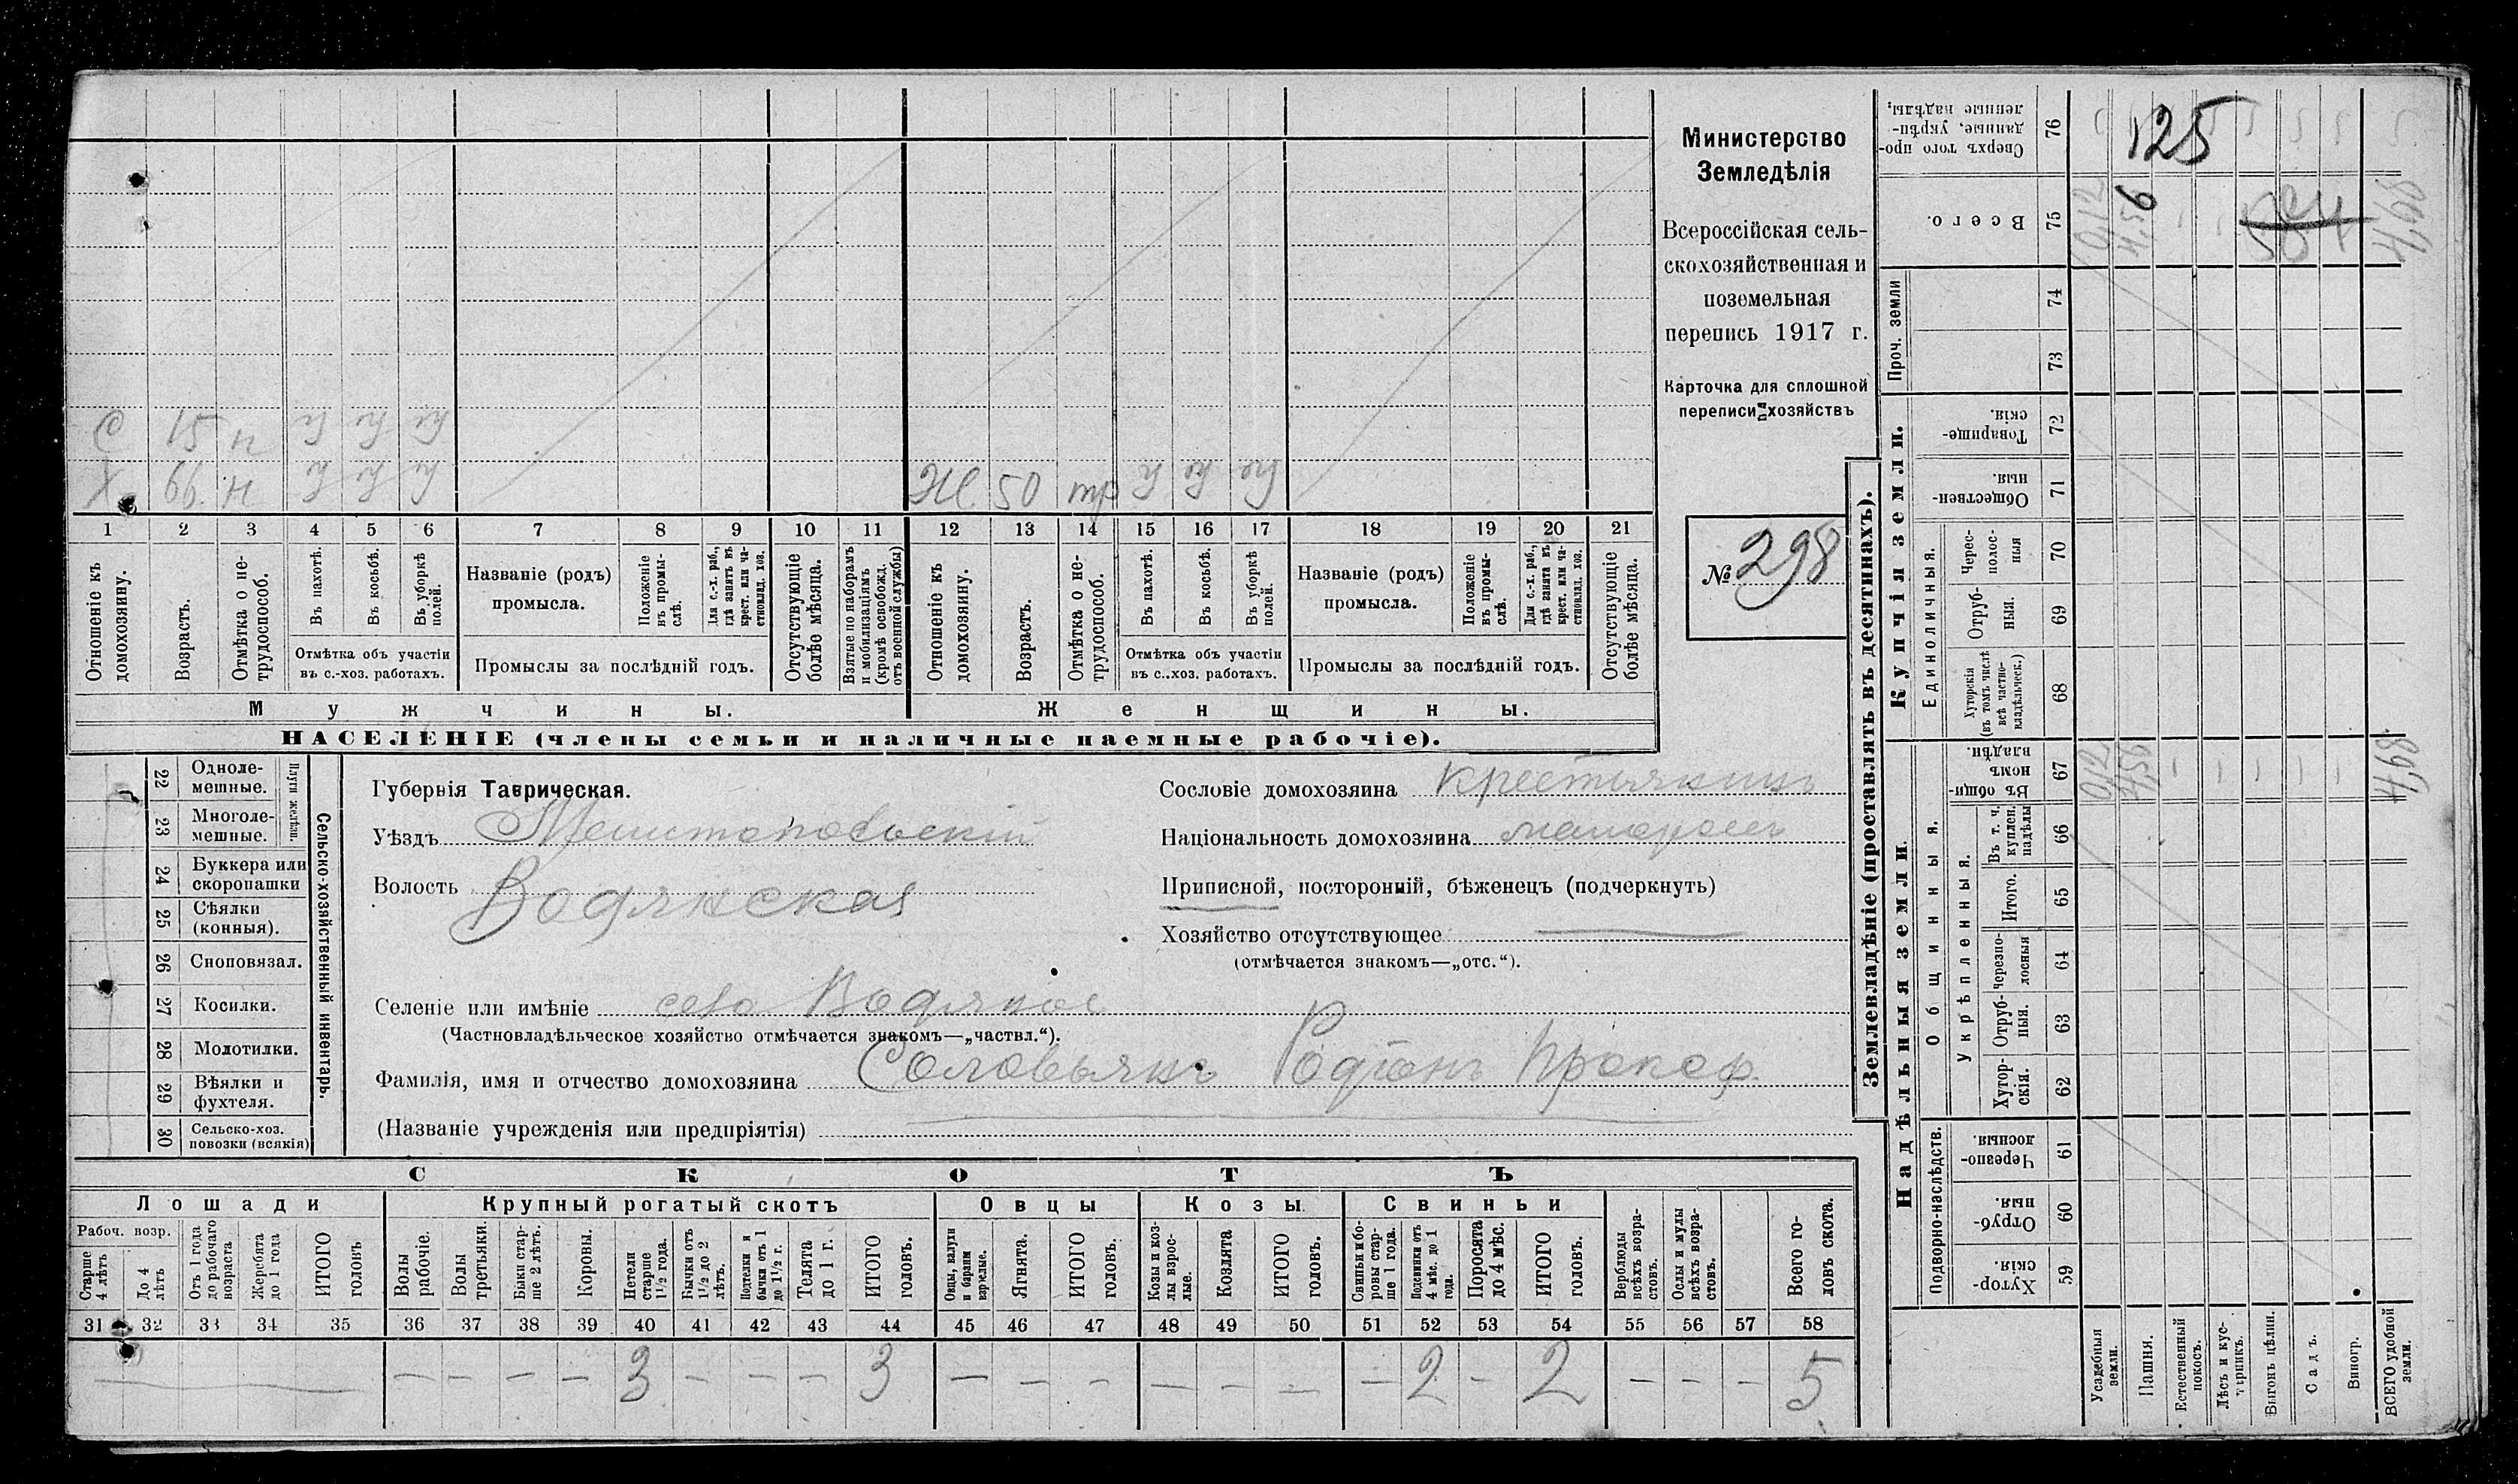 Министерство
Земледѣлія
Всероссійская сель-
скохозяйственная и
поземельная
перепись 1917 г.
Карточка для сплошной
переписи хозяйствъ
№ 298
С 15 н
Х 66 н
Ж 50
1 2 3 4 5 6 7 8 9 10 11 12 13 14 15 16 17 18 19 20 21
Отношеніе къ домохозяину.
Возрастъ.
Отмѣтка о не-трудоспособ.
Въ пахотѣ.
Въ косьбѣ.
Въ уборкѣ полей.
Отмѣтка объ участіи
въ с.-хоз. работахъ.
Названіе (родъ)
промысла.
Положеніе въ промы-слѣ.
Для с.-х. раб., гдѣ занятъ въ крест. или ча-стновлад. хоз.
Промыслы за послѣдній годъ.
Отсутствующіе болѣе мѣсяца.
Взятые по наборамъ и мобилизаціямъ (кромѣ освобожд. отъ военной службы)
Отношеніе къ домохозяину.
Возрастъ.
Отмѣтка о не-трудоспособ.
Въ пахотѣ.
Въ косьбѣ.
Въ уборкѣ полей.
Отмѣтка объ участіи
въ с..хоз. работахъ.
Названіе (родъ)
промысла.
Положеніе въ промы-слѣ.
Для с.-х. раб., гдѣ занята въ крест. или ча-стновлад. хоз.
Промыслы за послѣдній годъ.
Отсутствующіе болѣе мѣсяца.
Мужчины.
Женщины.
НАСЕЛЕНІЕ (члены семьи и наличные наемные рабочіе).
Сельско-хозяйственный инвентарь.
Плуги желѣзн.
22 Одноле-мешные.
23 Многоле-мешные.
24 Буккера или скоропашки
25 Сѣялки (конныя).
26 Сноповязал.
27 Косилки.
28 Молотилки.
29 Вѣялки и фухтеля.
30 Сельско-хоз. повозки (всякія)
Губернія Таврическая.
Уѣздъ Мелитопольскій
Волость Водянская
Селеніе или имѣніе село Водяное
(Частновладѣльческое хозяйство отмѣчается знакомъ—„частвл.“).
Фамилія, имя и отчество домохозяина Соловьянъ Родіонъ Прокоф.
(Названіе учрежденія или предпріятія)
Сословіе домохозяина крестьянинъ
Національность домохозяина малоросъ
Приписной, посторонній, бѣженецъ (подчеркнуть)
Хозяйство отсутствующее
(отмѣчается знакомъ—„отс.“).
СКОТЪ
Лошади
Крупный рогатый скотъ
Овцы
Козы
Свиньи
Рабоч. возр.
Старше 4 лѣтъ
До 4 лѣтъ
Отъ 1 года до рабочаго возраста
Жеребята до 1 года
ИТОГО головъ
Волы рабочіе.
Волы третьяки.
Быки стар-ше 2 лѣтъ.
Коровы.
Нетели старше 1½ года.
Бычки отъ 1½ до 2 лѣтъ.
Подтелки и бычки отъ 1 до 1½ г.
Телята до 1 г.
ИТОГО головъ.
Овцы, валухи и бараны взрослые.
Ягнята.
ИТОГО головъ.
Козы и коз-лы взрос-лые.
Козлята
ИТОГО головъ.
Свиньи и бо-ровы стар-ше 1 года.
Подсвинки отъ 4 мѣс. до 1 года.
Поросята до 4 мѣс.
ИТОГО головъ.
Верблюды всѣхъ возра-стовъ.
Ослы и мулы всѣхъ возра-стовъ.
Всего го-ловъ скота.
31 32 33 34 35 36 37 38 39 40 41 42 43 44 45 46 47 48 49 50 51 52 53 54 55 56 57 58
— — — — — 3 — — — 3 — — — — — — — 2 — 2 — — — 5
Землевладѣніе (проставлять въ десятинахъ).
Надѣльныя земли.
Купчія земли.
Проч. земли
Подворно-наслѣдств.
Общинныя.
Укрѣпленныя.
Единоличныя.
Сверхъ того про-данные, укрѣп-ленные надѣлы, 76 125
Всего. 75 0,12 4,56 4,68
74
73
Товарище-скія. 72
Обществен-ныя. 71
Черес-полос-ныя 70
Отруб-ныя. 69
Хуторскія (въ томъ числѣ всѣ частно-владѣльческ.) 68
Въ общи-номъ владѣн. 67 0,12 4,56 — — — — — 4,68
Въ т. ч. куплен. надѣлы 66
Итого. 65
Черезпо-лосныя 64
Отруб-ныя. 63
Хутор-скія. 62
Черезпо-лосныя. 61
Отруб-ныя. 60
Хутор-скія. 59
Усадебныя земли.
Пашня.
Естественный покосъ.
Лѣсъ и кус-тарникъ.
Выгонъ цѣлин.
Садъ.
Виногр.
ВСЕГО удобной земли.